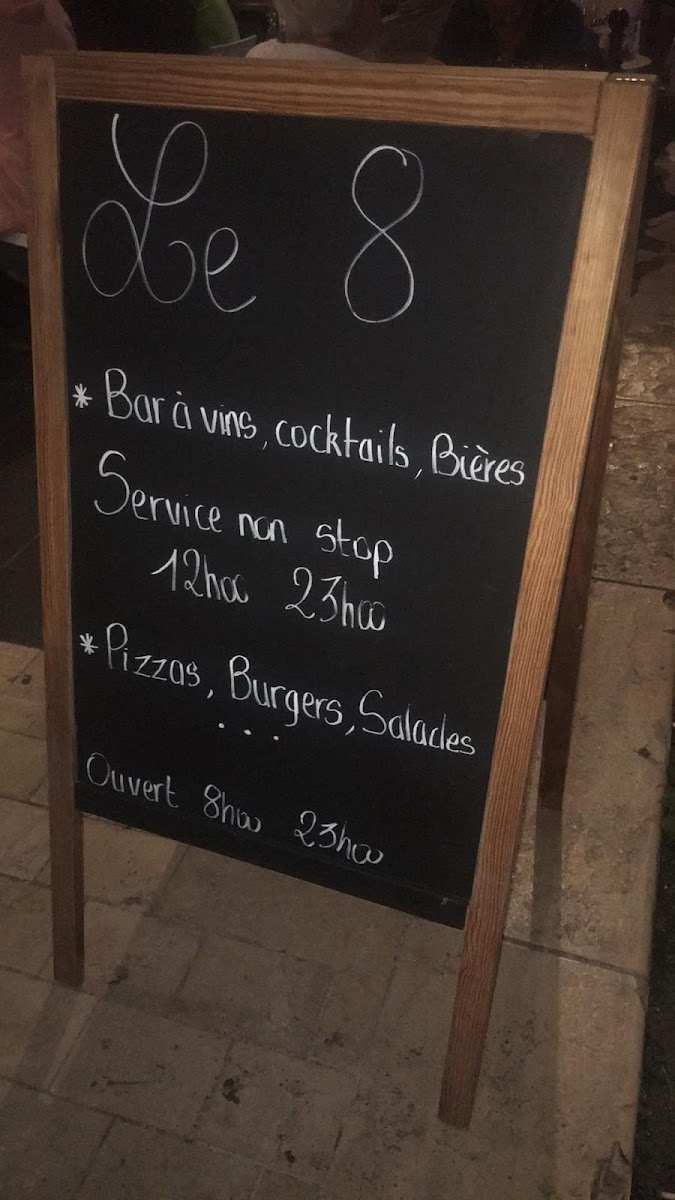 Le 8
* Bar à vins, cocktails, Bières
Service non stop
12h00 23h00
* Pizzas, Burgers, Salades
...
Ouvert 8h00 23h00